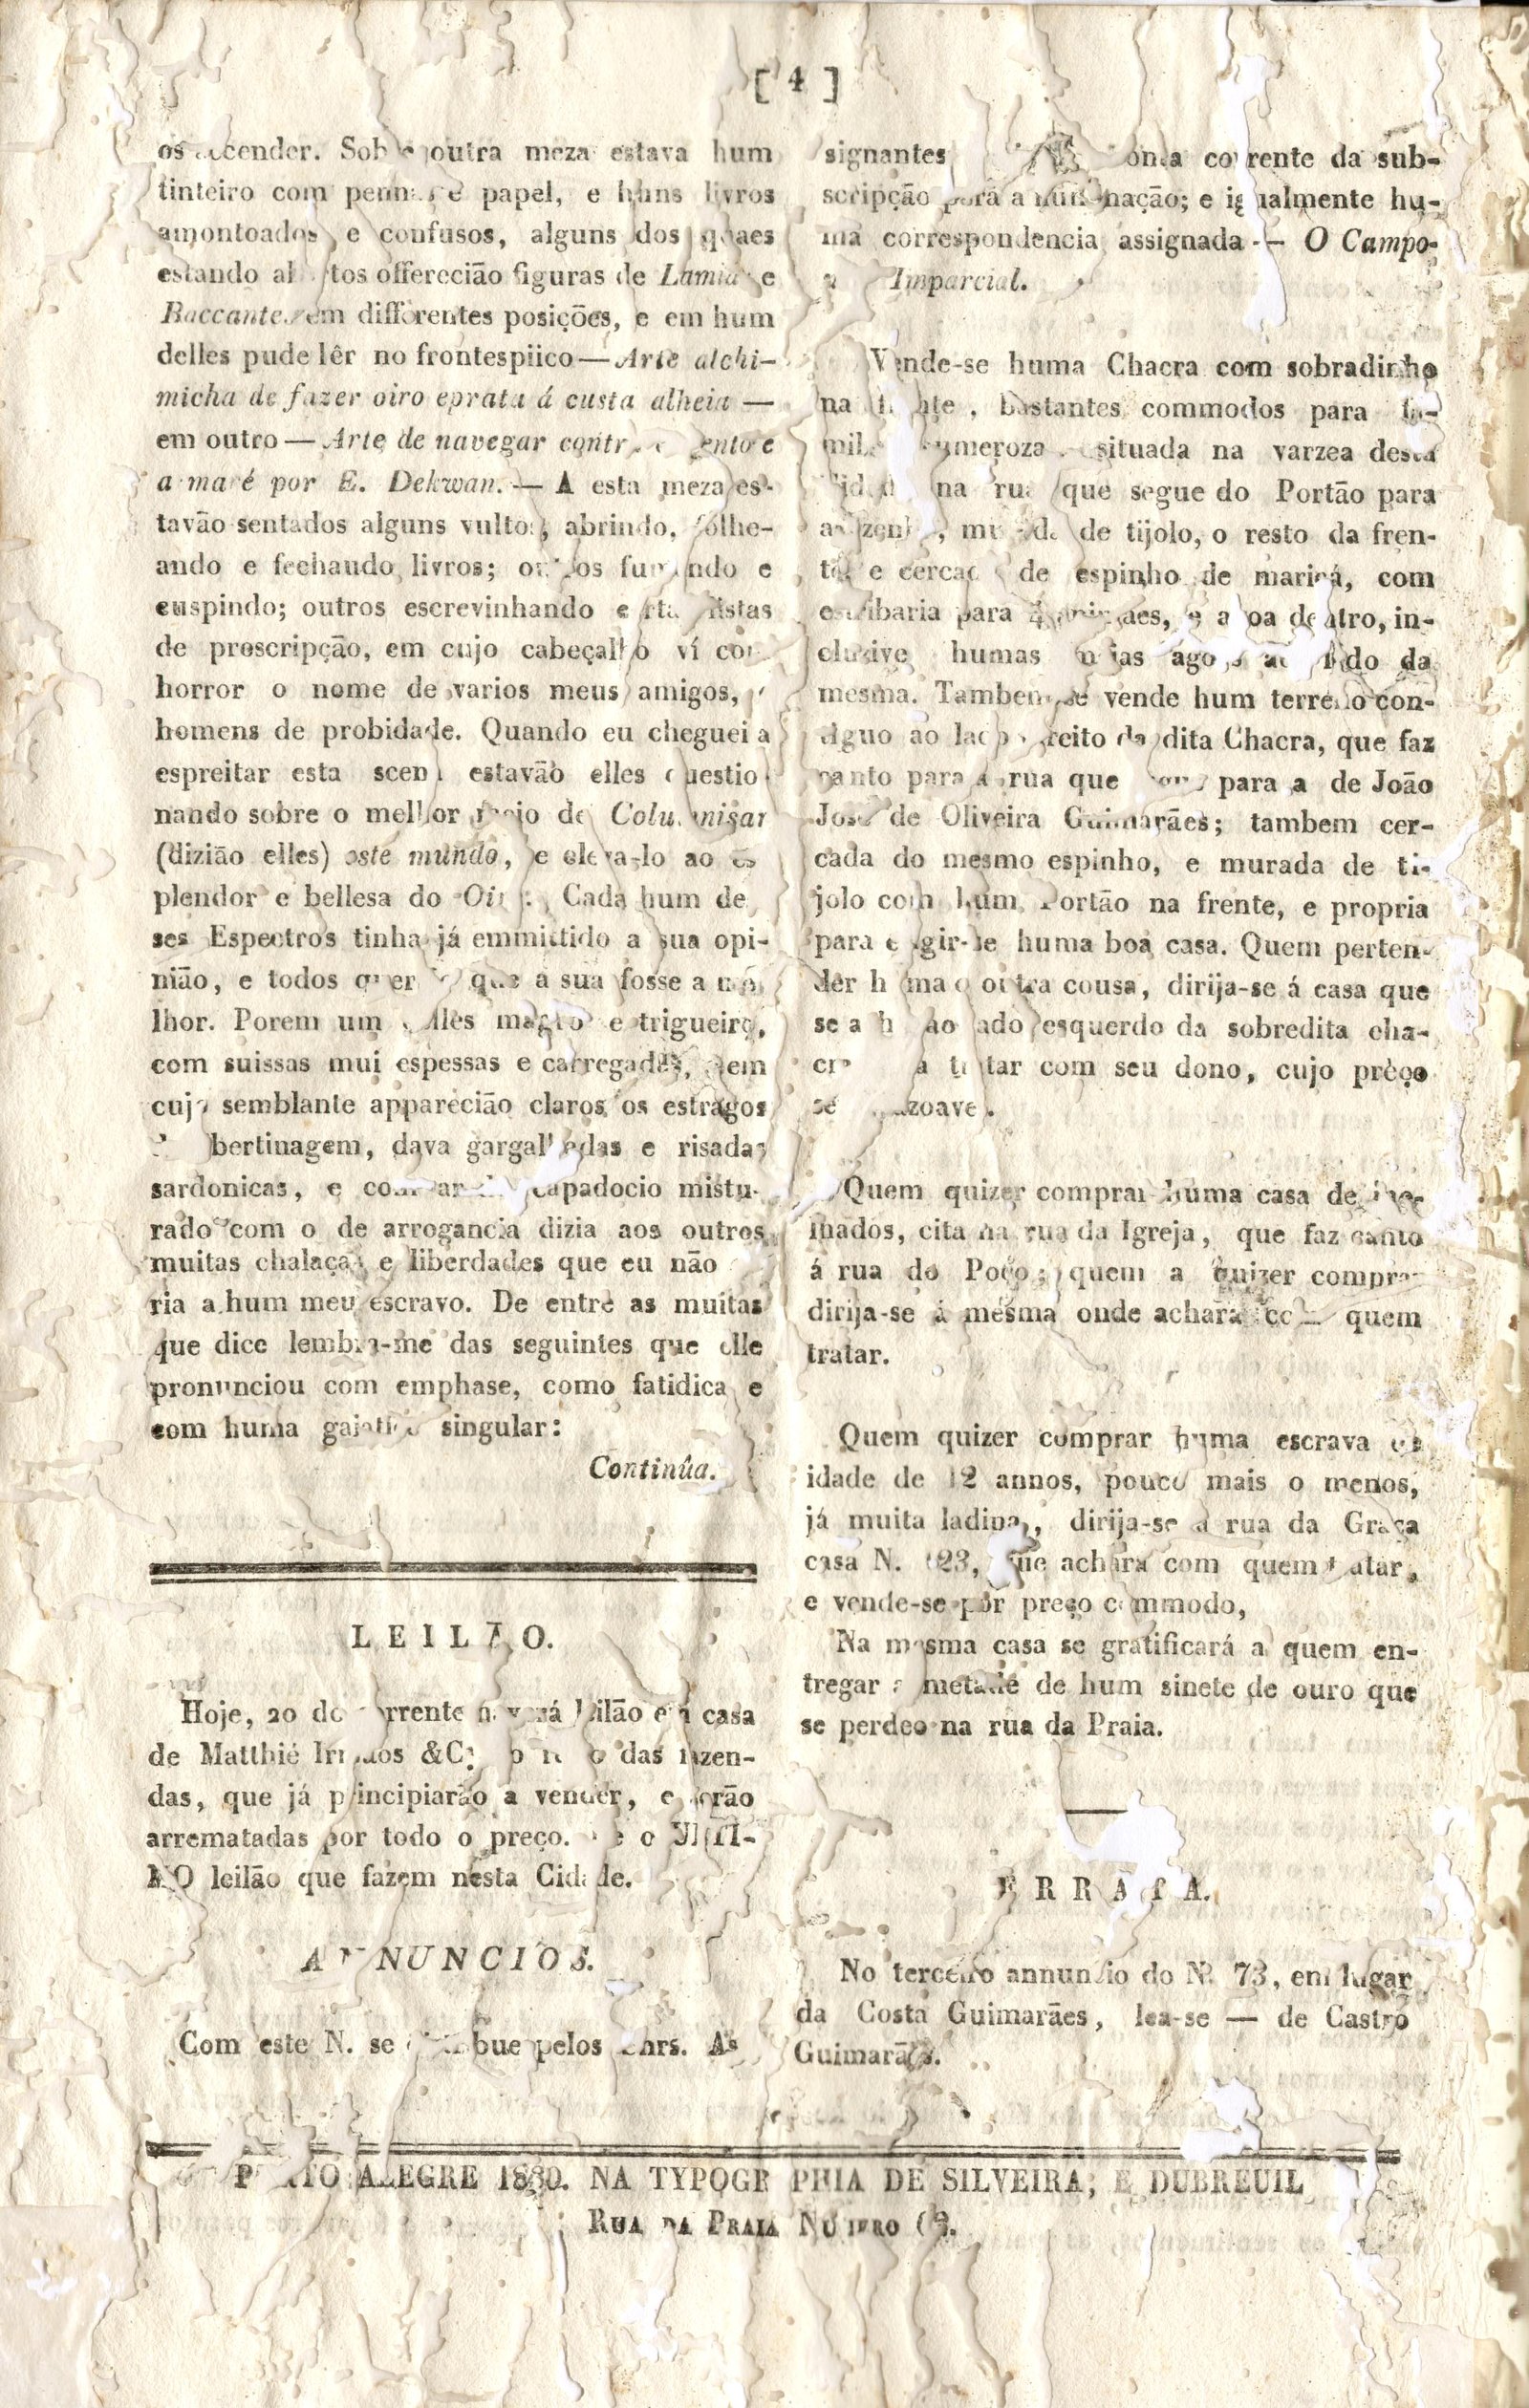 [ 4 ]
outra meza estava hum
tinteiro com papel, e huns livros
amontoados, e confusos, alguns dos quaes
estando offerecião figuras de Lamias e
Baccantes em differentes posições, e em hum
delles pude lêr no frontespiico — Arte alchi-
micha de fazer oiro eprata á custa alheia —
em outro — Arte de navegar e
a maré por E. Dekwan. — A esta meza es-
tavão sentados alguns vultos, abrindo, folhe-
ando e fechando livros; outros fumando e
cuspindo; outros escrevinhando listas
de proscripção, em cujo cabeçalho ví com
horror o nome de varios meus amigos,
homens de probidade. Quando eu cheguei a
espreitar esta scena estavão elles questio-
nando sobre o melhor meio de
(dizião elles) este mundo, e eleva-lo ao es-
plendor e bellesa do Cada hum des-
ses Espectros tinha já emmittido a sua opi-
nião, e todos que a sua fosse a me-
lhor. Porem um delles magro e trigueiro,
com suissas mui espessas e carregadas, em
cujo semblante apparecião claros os estragos
bertinagem, dava gargalhadas e risadas
sardonicas, e com capadocio mistu-
rado com o de arrogancia dizia aos outros
muitas chalaças e liberdades que eu não
ria a hum meu escravo. De entre as muitas
que dice lembra-me das seguintes que elle
pronunciou com emphase, como fatidica e
com huma singular:
Continûa.
LEILÃO.
Hoje, 20 do corrente haverá leilão em casa
de Matthié Irmãos &C. das fazen-
das, que já principiarão a vender, e serão
arrematadas por todo o preço. e o ULTI-
MO leilão que fazem nesta Cidade.
ANNUNCIOS.
Com este N. se pelos Snrs. As-
signantes conta corrente da sub-
scripção para a nação; e igualmente hu-
ma correspondencia assignada — O Campo-
Imparcial.
Vende-se huma Chacra com sobradinho
na frente, bastantes commodos para fa-
milia numeroza situada na varzea desta
Cidade na rua que segue do Portão para
a de tijolo, o resto da fren-
te e cercada de espinho de maricá, com
estribaria para 4 animaes, e agoa dentro, in-
clusive humas do da
mesma. Tambem se vende hum terreno con-
tiguo ao lado direito da dita Chacra, que faz
canto para a rua que segue para a de João
José de Oliveira Guimarães; tambem cer-
cada do mesmo espinho, e murada de ti-
jolo com hum Portão na frente, e propria
para erigir-se huma boa casa. Quem perten-
der huma ou outra cousa, dirija-se á casa que
se acha ao lado esquerdo da sobredita cha-
cra a tratar com seu dono, cujo preço
será razoavel.
Quem quizer comprar huma casa de
lhados, cita na rua da Igreja, que faz canto
á rua do Poço; quem a quizer comprar
dirija-se á mesma onde achará com quem
tratar.
Quem quizer comprar huma escrava de
idade de 12 annos, pouco mais o menos,
já muita ladina, dirija-se á rua da Graça
casa N. que achará com quem tratar,
e vende-se por preço commodo,
Na mesma casa se gratificará a quem en-
tregar a metade de hum sinete de ouro que
se perdeo na rua da Praia.
ERRATA.
No terceiro annuncio do N. 73, em lugar
da Costa Guimarães, lea-se — de Castro
Guimarães.
PORTO ALEGRE 1830. NA TYPOGRAPHIA DE SILVEIRA, E DUBREUIL
RUA DA PRAIA NUMERO